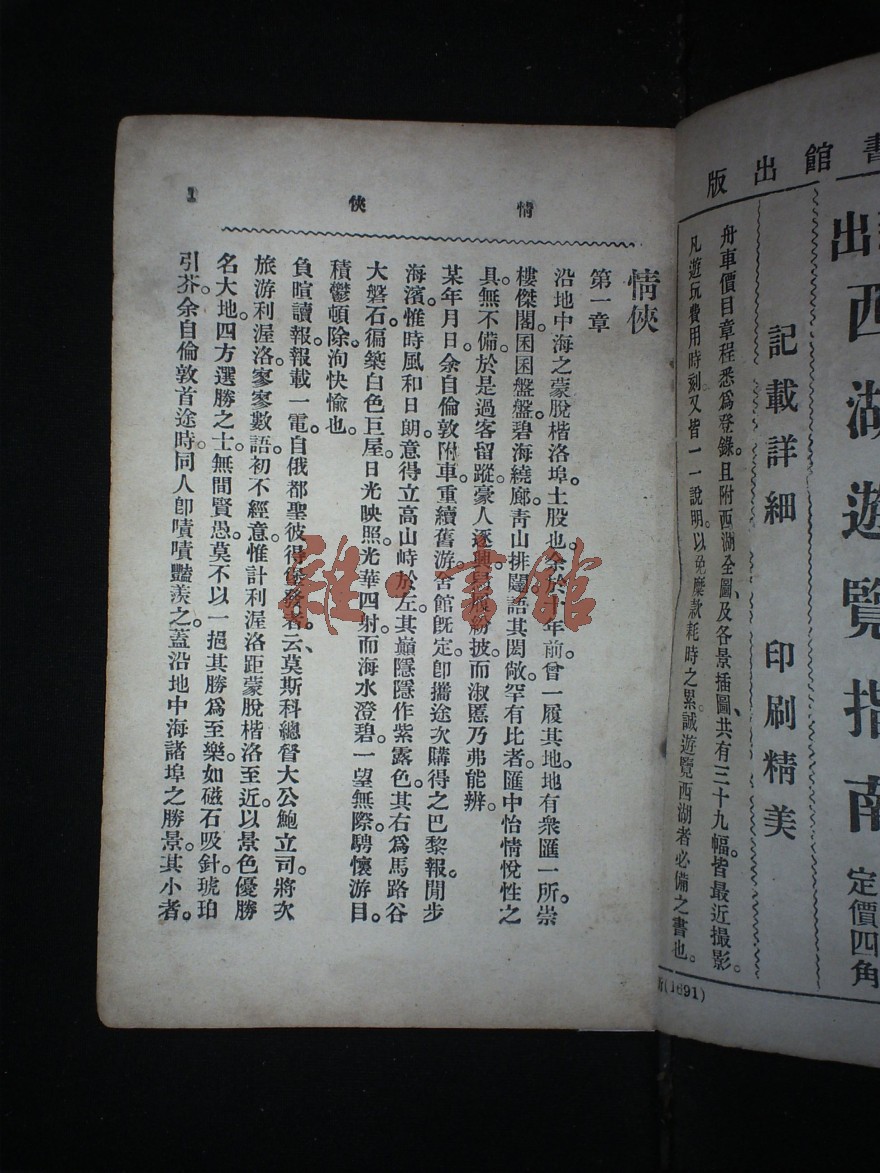 書館出版
出
西湖遊覽指南 定價四角
記載詳細 印刷精美
舟車價目章程悉爲登錄。且附西湖全圖、及各景插圖、共有三十九幅。皆最近撮影。
凡遊玩費用時刻。又皆一一說明。以免糜款耗時之累。誠遊覽西湖者必備之書也。
(1691)
情俠 1
情俠
第一章
沿地中海之蒙脫楷洛埠土股也。余於十年前。曾一履其地。地有衆匯一所。崇
樓傑閣。囷囷盤盤。碧海繞廊。靑山排闥。語其閎敞。罕有比者。匯中怡情悅性之
具無不備。於是過客留蹤。豪人逐興。屐紛披。而淑慝乃弗能辨。
某年月日。余自倫敦附車。重續舊游。舍館旣定。卽攜途次購得之巴黎報。閒步
海濱。惟時風和日朗。意得立高山峙於左。其巓隱隱作紫露色。其右爲馬路谷
大磐石。徧築白色巨屋。日光映照。光華四射。而海水澄碧。一望無際。騁懷游目。
積鬱頓除。洵快愉也。
負暄讀報。報載一電。自俄都聖彼得堡發者。云、莫斯科總督大公鮑立司。將次
旅游利渥洛。寥寥數語。初不經意。惟計利渥洛距蒙脫楷洛至近。以景色優勝
名大地。四方選勝之士。無間賢愚。莫不以一挹其勝爲至樂。如磁石吸針。琥珀
引芥。余自倫敦首途時。同人卽嘖嘖豔羨之。蓋沿地中海諸埠之勝景。其小者。
雜·書館